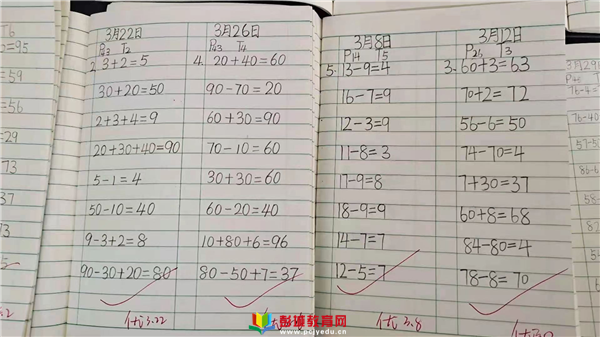 3月22日
P43 T2
2. 3+2=5
30+20=50
2+3+4=9
20+30+40=90
5-1=4
50-10=40
9-3+2=8
90-30+20=80
优3.22
3月26日
P43 T4
4. 20+40=60
90-70=20
60+30=90
70-10=60
30+30=60
60-20=40
10+80+6=96
80-50+7=37
3月8日
P14 T5
5. 13-9=4
16-7=9
12-3=9
11-8=3
17-9=8
18-9=9
14-7=7
12-5=7
优3.8
3月12日
P26 T3
3. 60+3=63
70+2=72
56-6=50
74-70=4
7+30=37
60+8=68
84-80=4
78-8=70
3月29日
76-4=
76-40
=95
=59
=56
=29
73
37
73
彭博教育网
www.pcjyedu.cn